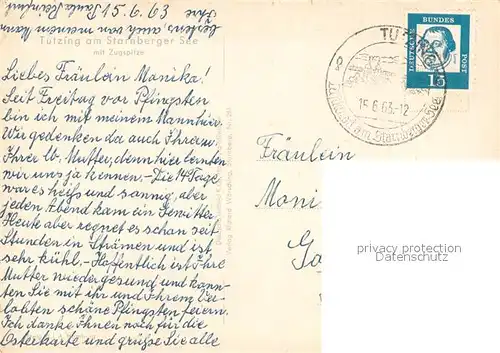 Ihre
herzlichst, auch von meinem Mann
15.6.63
Tutzing am Starnberger See
mit Zugspitze
Liebes Fräulein Monika!
Seit Freitag vor Pfingsten
bin ich mit meinem Mann hier.
Wir gedenken da auch Ihrer u.
Ihrer lb. Mutter, denn hier lernten
wir uns ja kennen. – Die 14 Tage
war es heiß und sonnig, aber
jeden Abend kam ein Gewitter.
Heute aber regnet es schon seit
Stunden in Strömen und ist
sehr kühl. – Hoffentlich ist Ihre
Mutter wieder gesund und konn-
ten Sie mit ihr und Ihrem Ver-
lobten schöne Pfingsten feiern.
Ich danke Ihnen noch für die
Osterkarte und grüße Sie alle
TUTZING
15.6.63-12
am Starnberger See
DEUTSCHE
BUNDES
POST
15
Fräulein
Moni
privacy protection
Datenschutz